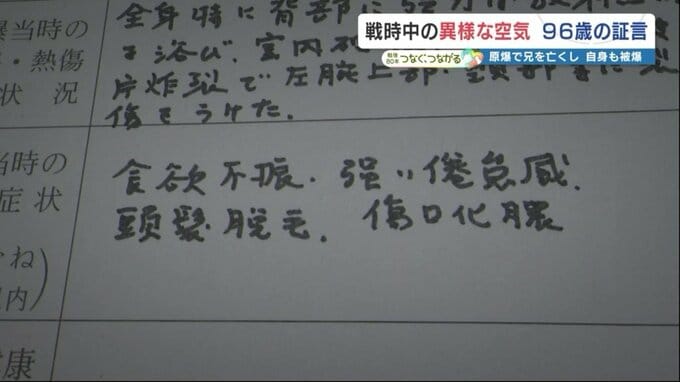 戦時中の異様な空気 96歳の証言
戦後80年 つなぐ、つながる
原爆で兄を亡くし 自身も被爆
爆当時の
・熱傷
状況
全身特に背部に強
を浴び、室内
片炸裂で左腕上部・頚部等に裂
傷をうけた.
当時の
症状
ね
内)
食欲不振. 強い倦怠感.
頭髪脱毛. 傷口化膿
健康